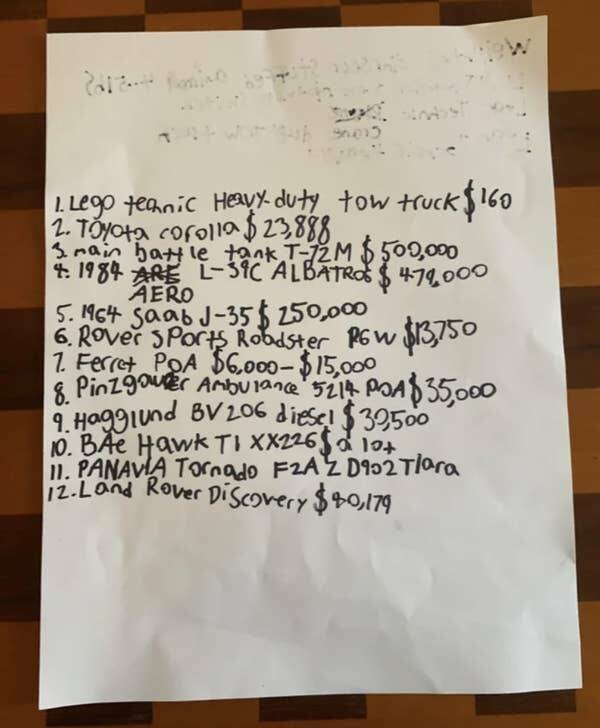 1. Lego teanic Heavy-duty tow truck $160
2. Toyota corolla $23,888
3. main battle tank T-72M $500,000
4. 1984 L-39C ALBATROS $479,000
AERO
5. 1964 Saab J-35 $250,000
6. Rover SPorts Roadster P6W $13,750
7. Ferret POA $6,000-$15,000
8. Pinzgauer Ambulance 5214 POA $35,000
9. Hagglund BV206 diesel $39,500
10. BAe Hawk T1 XX226 $ a lot
11. PANAVIA Tornado F2A Z D902 Tlara
12. Land Rover Discovery $40,179